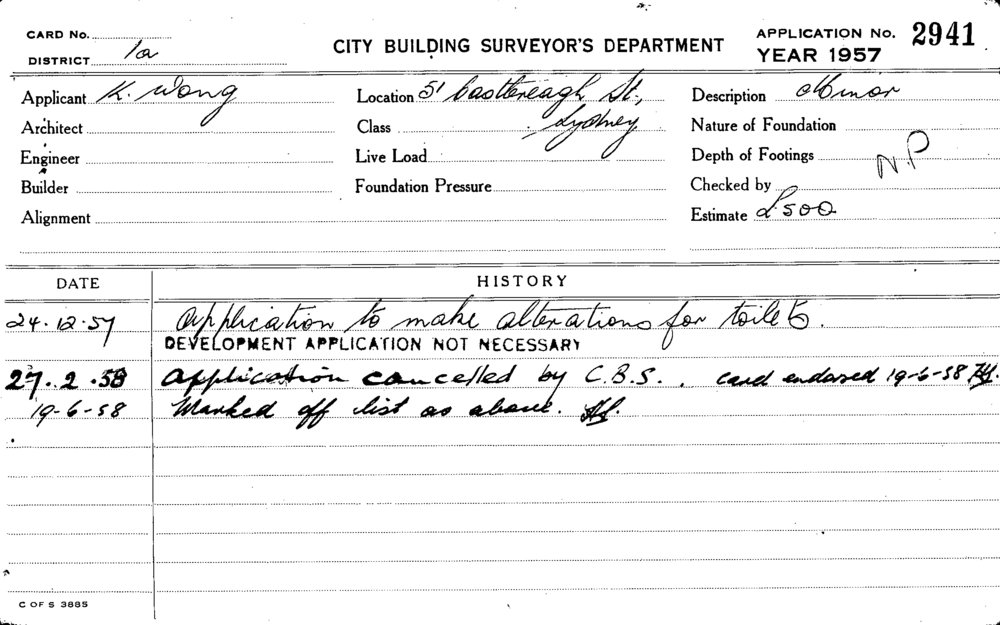 CARD No.
DISTRICT 1a
CITY BUILDING SURVEYOR'S DEPARTMENT
APPLICATION No. 2941
YEAR 1957
Applicant K. Wong
Location 51 Castlereagh St., Sydney
Description Minor
Architect
Class
Nature of Foundation
Engineer
Live Load
Depth of Footings N.P
Builder
Foundation Pressure
Checked by
Alignment
Estimate £500
DATE HISTORY
24.12.57 Application to make alterations for toilets.
DEVELOPMENT APPLICATION NOT NECESSARY
27.2.58 Application cancelled by C.B.S. . card endorsed 19-6-58
19-6-58 Marked off list as above.
C OF S 3885